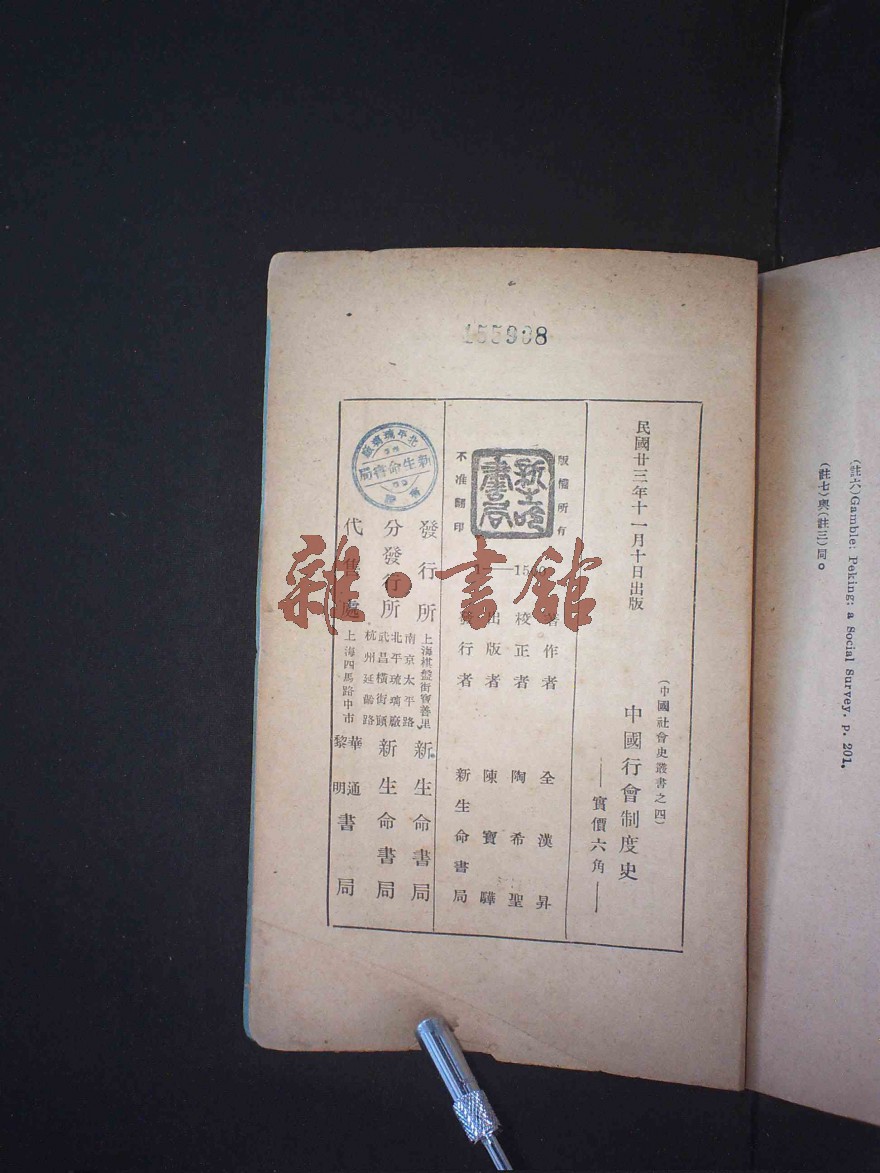 (註六)Gamble: Peking: a Social Survey. P. 201.
(註七)與(註三)同。
155938
民國廿三年十一月十日出版
(中國社會史叢書之四)
中國行會制度史
——實價六角——
版權所有
新生命書局
不准翻印
1——1500
著作者 全漢昇
校正者 陶希聖
出版者 陳寶驊
發行者 新生命書局
發行所 上海棋盤街寶善里 新生命書局
分發行所 南京太平路 北平琉璃廠 武昌橫街頭 杭州延齡路 新生命書局
代售處 上海四馬路中市 華通 黎明 書局
北平琉璃廠
新生命書局
雜·書館